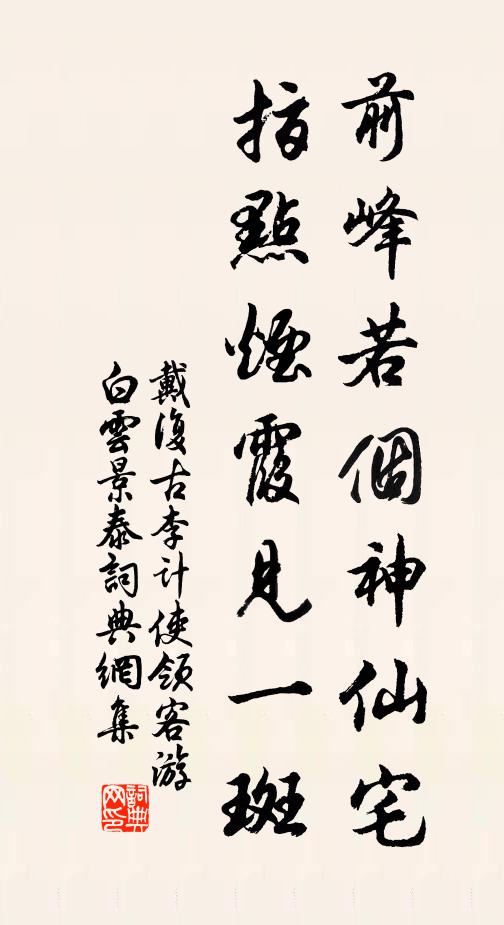 前峰若個神仙宅
指點煙霞見一斑
戴復古李計使領客游
白雲景泰詞典網集
詞典网印